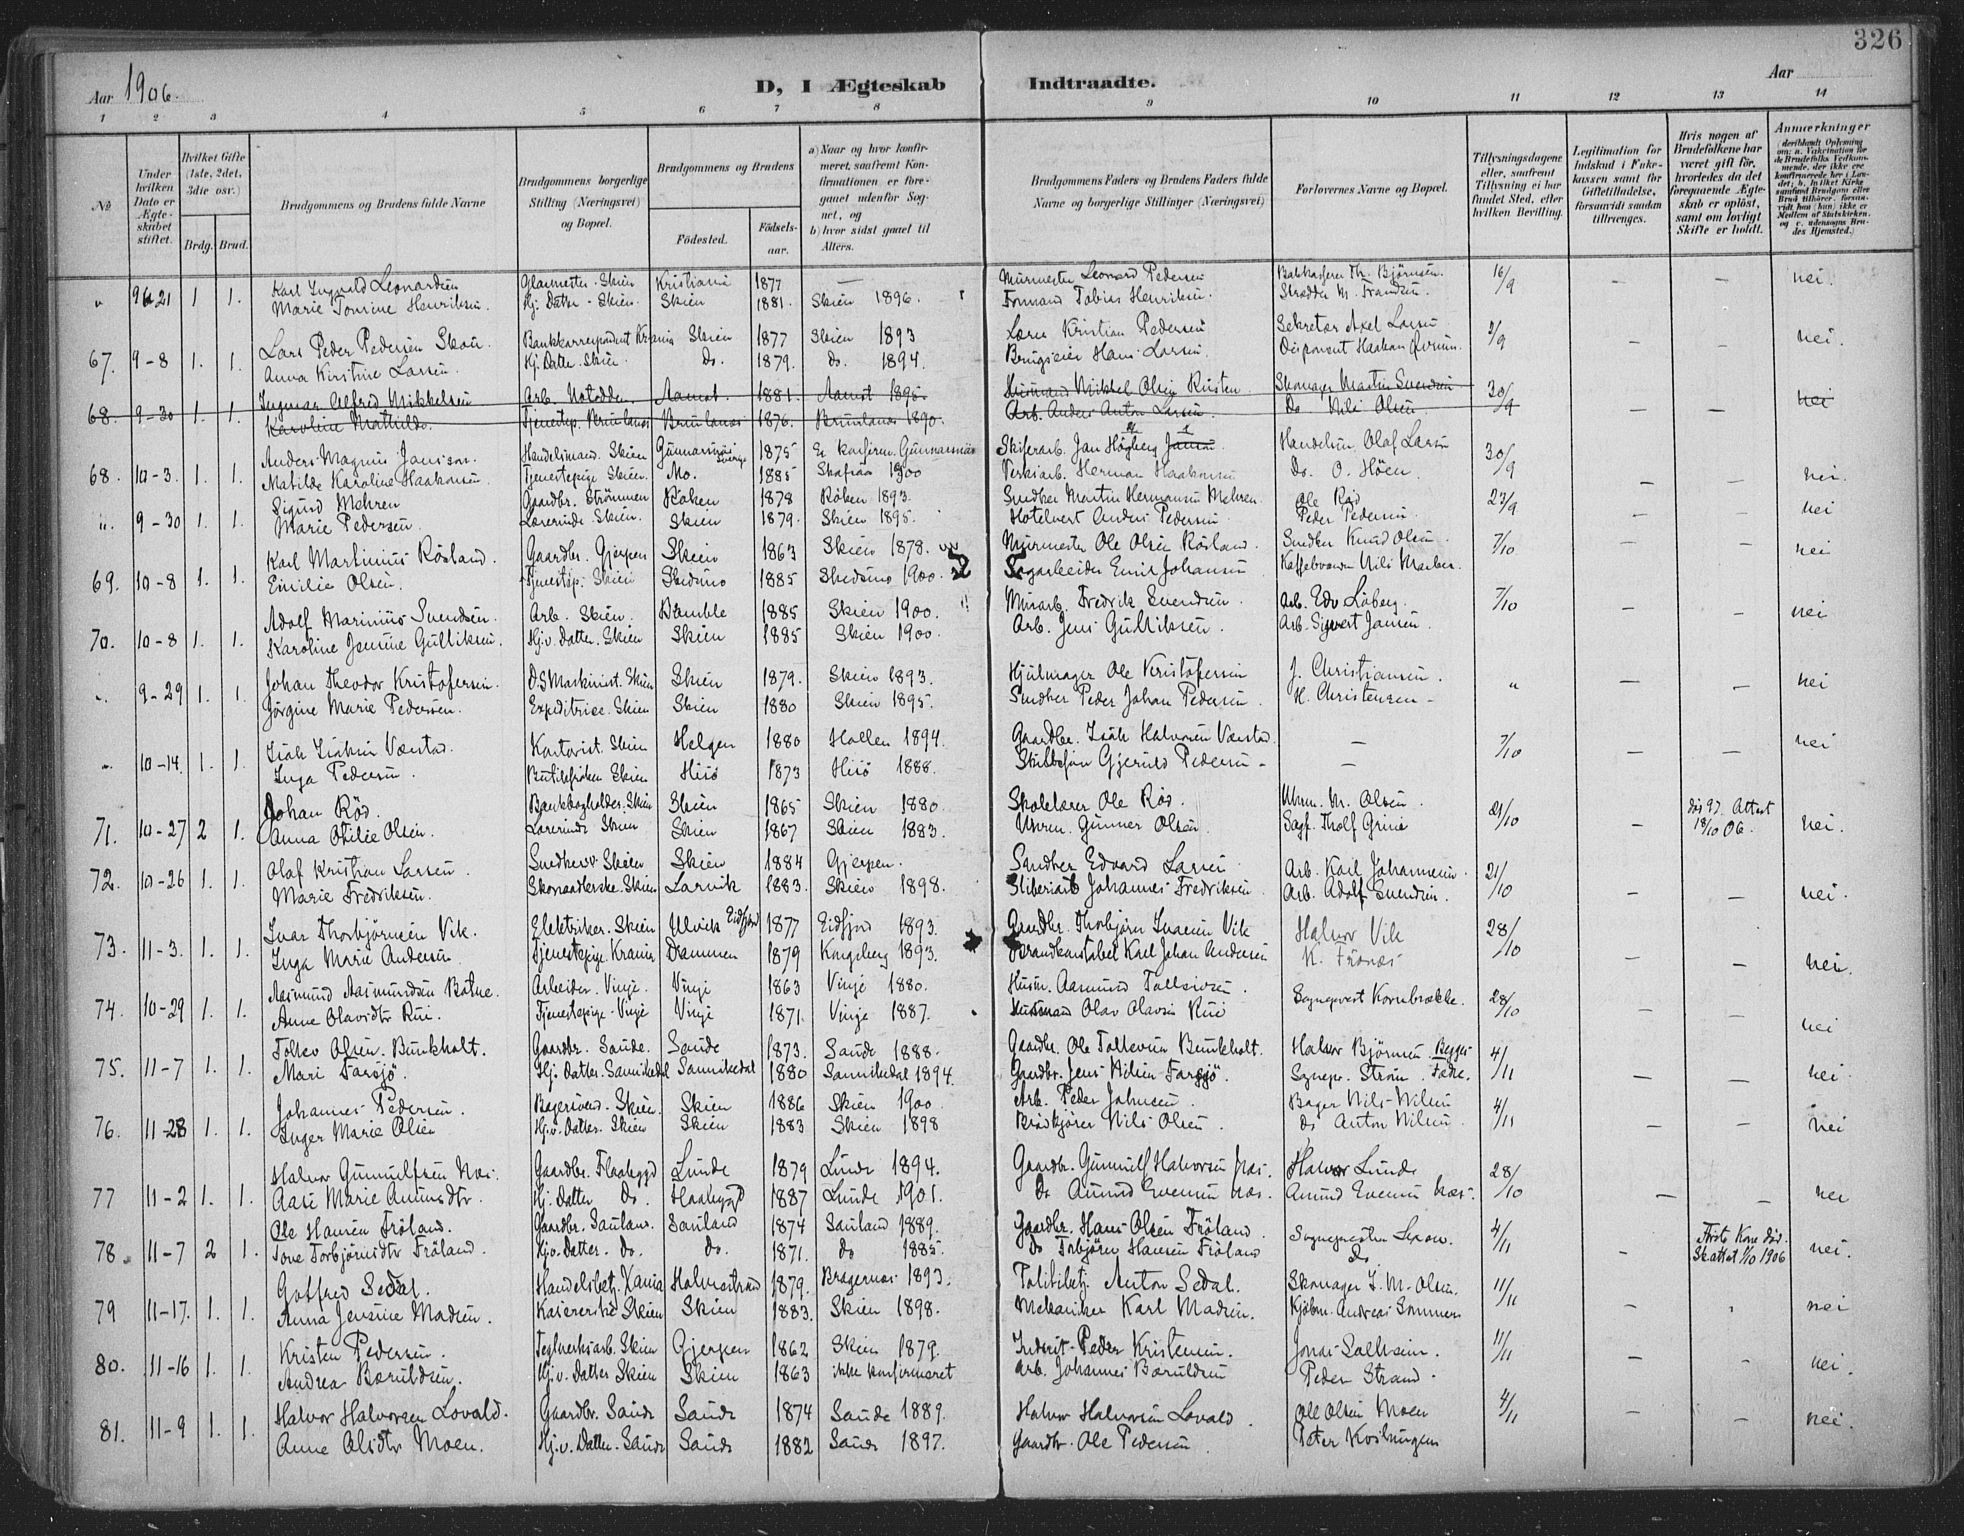 326
Aar 1906.
D, I Ægteskab Indtraadte.
Aar
1 2 3 4 5 6 7 8 9 10 11 12 13 14
No
Under hvilken Dato er Ægteskabet stiftet.
Hvilket Gifte (1ste, 2det, 3die osv.)
Brdg. Brud.
Brudgommens og Brudens fulde Navne
Brudgommens borgerlige Stilling (Næringsvei) og Bopæl.
Brudgommens og Brudens
Fødested.
Fødselsaar.
a) Naar og hvor konfirmeret, saafremt Konfirmationen er foregaaet udenfor Sognet, og
b) hvor sidst gaaet til Alters.
Brudgommens Faders og Brudens Faders fulde Navne og borgerlige Stillinger (Næringsvei)
Forlovernes Navne og Bopæl.
Tillysningsdagene eller, saafremt Tillysning ei har fundet Sted, efter hvilken Bevilling.
Legitimation for Indskud i Enkekassen samt for Giftetilladelse, forsaavidt saadan tiltrænges.
Hvis nogen af Brudefolkene har været gift før, hvorledes da det foregaaende Ægteskab er opløst, samt om lovligt Skifte er holdt.
Anmærkninger
" 9-21 1 1. Karl Leonardsen Glasmester. Skien Kristiania 1877 — Murmester Leonard Pedersen 16/9 nei.
Marie Tomine Henriksen. Hj. Datter - Skien. Skien 1881. Skien 1896. Formand Tobias Henriksen.
67. 9-8 1. 1. Lars Peder Pedersen Skien 1877 Skien 1893 Lærer Kristian Pedersen Sekretær Axel Larsen 2/9 — — nei.
Anna Kirstine Larsen. Hj. Datter Skien Do. 1879. do. 1894. Hans Larsen. Disponent Haakon
68. 9-30 1. 1. Ingmar Alfred Mikkelsen Arb. Notodden. Aamot. 1881. Aamot 1895. Mikkel Olsen Rusten. Skomager Martin Svendsen 30/9 — — nei
Karoline Mathilde. 1876. 1890. Arb. Anders Anton Larsen. Do Nils Olsen.
68. 10-3 1. 1. Anders Magnus Jansson. Handelsmand. Skien Gunnarsnäs Sverige 1875 Ei konfirm. Gunnarsnäs Jan Högberg Handelsm. Olaf Larsen 30/9 — — nei.
Matilde Karoline Haakonsen. Tjenestepige Skien. Mo. 1885 Skafsaa 1900 Herman Haakonsen Do. O. Höen.
" 9-30 1. 1. Sigurd Mehren Gaardbr. Strömmen Röken 1878 Röken 1893. Snedker Martin Hermansen Mehren. Ole Rød 23/9 — — nei
Marie Pedersen. Lærerinde Skien. Skien 1879. Skien 1895. Hotelvert Anders Pedersen Peder Pedersen.
69. 10-8 1. 1. Karl Martinius Rösland. Gaardbr. Gjerpen Skien 1863 Skien 1878. Murmester Ole Olsen Rösland. Snedker Knud Olsen 7/10 — — nei
Emilie Olsen. Tjenestep. Skien Skedsmo 1885 Skedsmo 1900. Sagarbeider Emil Johansen
70. 10-8 1. 1. Adolf Marinius Svendsen. Arb. Skien. Bamble 1885 Skien 1900. Fredrik Svendsen. Arb. Edv Löberg. 7/10 — — nei
Karoline Jensine Gulliksen. Hj.v. Datter. Skien Skien 1885 Skien 1900. Arb. Jens Gulliksen. Arb. Sigvert Jansen.
" 9-29 1. 1. Johan Theodor Kristofersen. D.S Maskinist. Skien Skien 1879. Skien 1893. Hjulmager Ole Kristofersen J. Christiansen. " — — nei
Jörgine Marie Pedersen. Expeditrice. Skien Skien 1880 Skien 1895. Snedker Peder Johan Pedersen H. Christensen
" 10-14. 1. 1. Isak Isaksen Værstad. Kontorist. Skien Helgen 1880 Hollen 1894. Gaardbr. Isak Halvorsen Værstad. — 7/10 — — nei
Inga Pedersen. Skien Hisö 1873 Hisö 1888. Gjeruld Pedersen —
71. 10-27 2 1. Johan Röd. Bankbogholder. Skien Skien 1865 Skien 1880. Skolelærer Ole Röd. Uhrm. M. Olsen. 21/10 — död 97. Attest 18/10 06. nei.
Anna Otilie Olsen. Lærerinde Skien Skien 1867 Skien 1883. Uhrm. Gunner Olsen.
72. 10-26 1. 1. Olaf Kristian Larsen Snedkersv. Skien Skien 1884 Gjerpen. Snedker Edvard Larsen Arb. Karl Johannesen. 21/10 — — nei.
Marie Fredriksen. Skomaderske. Skien Larvik 1883. Skien 1898. Johannes Fredriksen Arb. Adolf Svendsen.
73. 11-3. 1. 1. Ivar Thorbjörnsen Vik. Elektriker. Skien Ulvik Eidfjord 1877 Eidfjord 1893. Gaardbr. Thorbjörn Ivarsen Vik Halvor Vik 28/10 — — nei.
Inga Marie Andersen. Tjenestepige. Krania Drammen 1879 Kongsberg 1893. Brandkonstabel Karl Johan Andersen
74. 10-29 1. 1. Aasmund Aasmundsen Botne. Arbeider. Vinje. Vinje 1863 Vinje 1880. Husm. Aasmund Tollevsen. Sogneprest Kornbrække. 28/10 — — nei
Anne Olavsdtr Rui. Tjenestepige - Vinje Vinje 1871. Vinje 1887. Husmand Olav Olavsen Rui
75. 11-7 1. 1. Tollev Olsen. Bunkholt. Gaardbr. Saude. Saude 1873. Saude 1888. Gaardbr. Ole Tollevsen Bunkholt. Halvor Björnsen. Begges 4/11 — — nei
Mari Farsjö. Hj. Datter. Sannikedal Sannikedal 1880 Sannikedal 1894. Gaardbr. Jens Nilsen Farsjö. Sognepr. Ström. Fædre.
76. 11-28 1. 1. Johannes Pedersen. Bagersvend. Skien. Skien 1886 Skien 1900. Arb. Peder Johnsen. Bager Nils Nilsen 4/11 — — nei
Inger Marie Olsen Hj.v. Datter. Skien Skien 1883 Skien 1898 Nils Olsen. do Anton Nilsen.
77 11-2 1. 1. Halvor Gunnulfsen Næs. Gaardbr. Flaabygd Lunde 1879 Lunde 1894. Gaardbr. Gunnulf Halvorsen Næs. Halvor Lunde 28/10 — — nei
Aase Marie Amundsdtr. Hj. Datter do. Flaabygd 1887 Lunde 1901. Do Amund Evensen Næs. Amund Evensen Næs.
78. 11-7 2 1. Ole Hansen Fröland. Gaardbr. Sauland. Sauland 1874 Sauland 1889. Gaardbr. Hans Olsen Fröland. 4/11 — Förste Kone död. Skattet 1/10 1906 nei.
Tone Torbjörnsdtr Fröland. Hj.v. Datter. do. do. 1871. do 1885. Do Torbjörn Hansen Fröland Do
79 11-17. 1. 1. Gotfred Sedal. Handelsbetj. Xania Holmestrand 1879. Bragernes 1893. Politibetj. Anton Sedal. Skomager L. M. Olsen. 11/11 — nei
Anna Jensine Madsen. Kasererske Skien Skien 1883. Skien 1898. Mekaniker Karl Madsen. Kjöbm. Andreas Sommer
80. 11-16 1. 1. Kristen Pedersen. Teglverksarb. Skien Gjerpen 1862 Skien 1879. Inderst. Peder Kristensen. Jonas Solheim. 11/11 — nei.
Andrea Bæruldsen. Hj.v. Datter Skien Skien 1863 ikke konfirmeret Arb. Johannes Bæruldsen Peder Strand.
81. 11-9 1. 1. Halvor Halvorsen Lovald. Gaardbr. Saude Saude 1874 Saude 1889. Halvor Halvorsen Lovald. Ole Olsen Moen 4/11 — — nei.
Anne Olsdtr Moen. Hj.v. Datter. Saude Saude 1882 Saude 1897. Gaardbr. Ole Pedersen